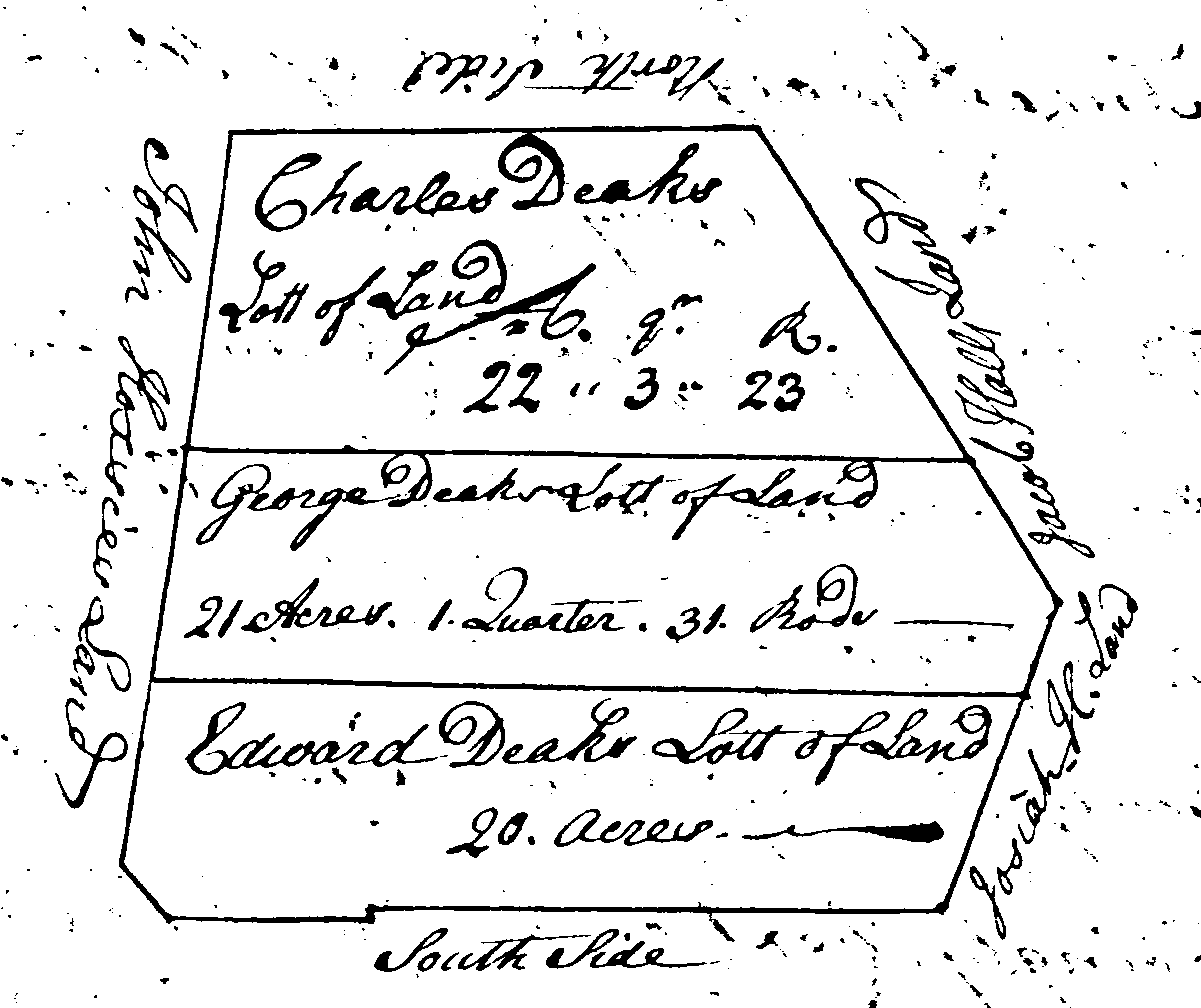 North Side
Charles Deaks
Lott of Land
A. qr. R.
22 " 3 " 23
George Deaks Lott of Land
21 Acres. 1. Quarter. 31. Rods
Edward Deaks Lott of Land
20. Acres.
South Side
John Hoxsies Land
Jacob Hall Land
Josiah H. Land